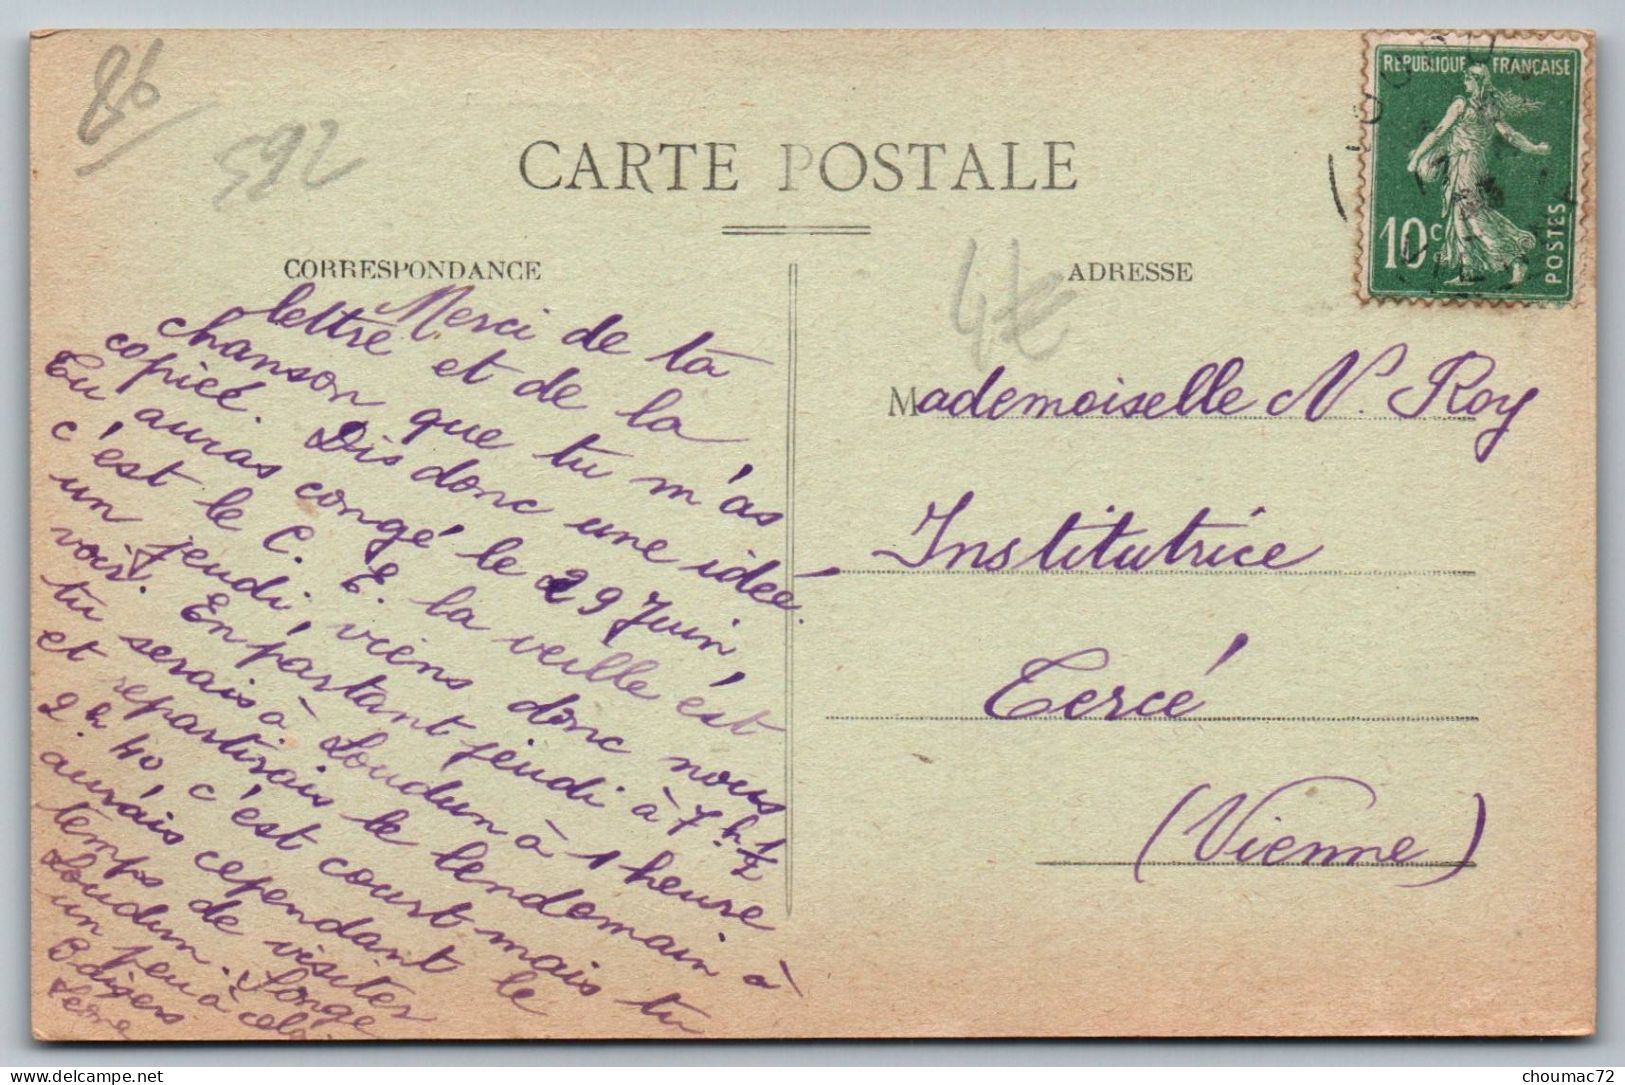 86
592
CARTE POSTALE
CORRESPONDANCE
ADRESSE
4€
REPUBLIQUE FRANÇAISE
10c
POSTES
Merci de ta
lettre et de la
chanson que tu m'as
copiée. Dis donc une idée.
Tu auras congé le 29 Juin,
c'est le C. E. la veille est
un jeudi, viens donc nous
voir. En partant jeudi à 7h. 1/2
tu serais à Loudun à 1 heure
et repartirais le lendemain à
2h 40, c'est court mais tu
aurais cependant le
temps de visiter
Loudun. Songe
un peu à cela
Baisers
Mademoiselle N. Roy
Institutrice
Tercé
(Vienne)
choumac72